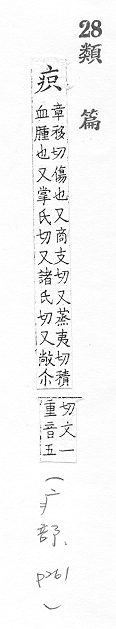 28 類篇
疻
章移切傷也又商支切又蒸夷切積
血腫也又掌氏切又諸氏切又敞尒
切文一
重音五
(疒部、p261)